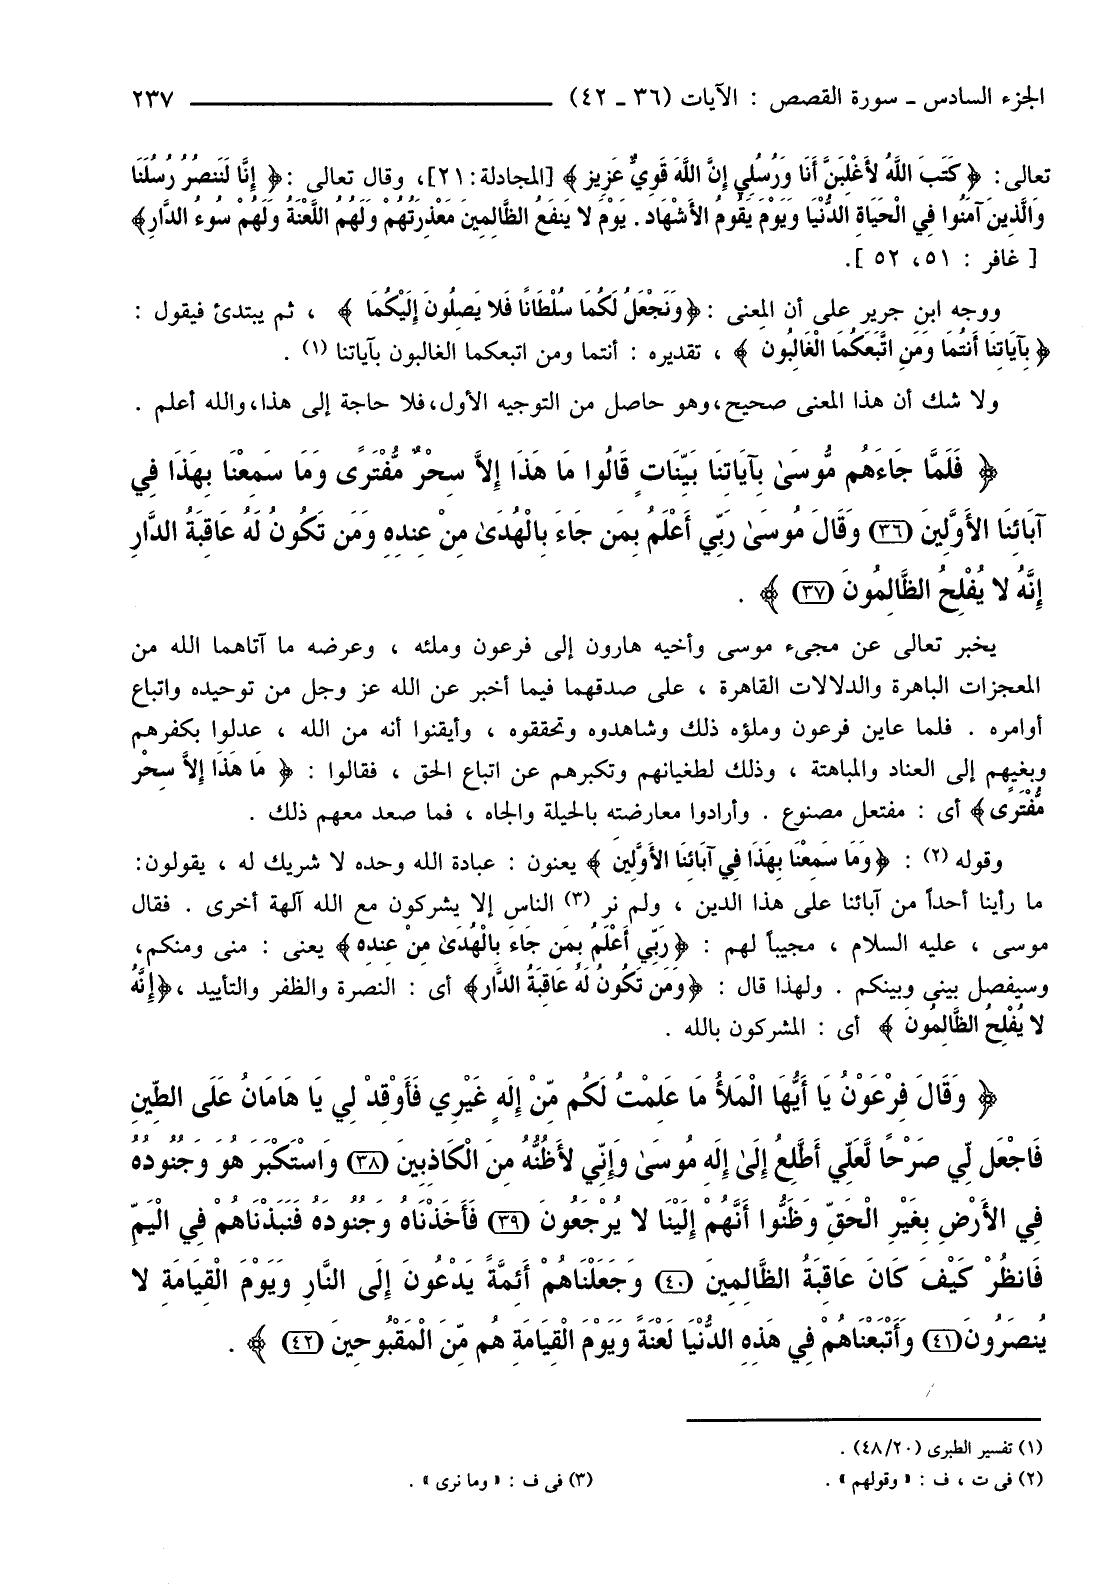 الجزء السادس ـ سورة القصص : الآيات (٣٦ ـ ٤٢) ــــــــــــــــــــــ ٢٣٧
تعالى: ﴿ كَتَبَ اللَّهُ لأَغْلِبَنَّ أَنَا وَرُسُلِي إِنَّ اللَّهَ قَوِيٌّ عَزِيز ﴾ [المجادلة:٢١]، وقال تعالى :﴿ إِنَّا لَنَنصُرُ رُسُلَنَا
وَالَّذِينَ آمَنُوا فِي الْحَيَاةِ الدُّنْيَا وَيَوْمَ يَقُومُ الأَشْهَاد . يَوْمَ لا يَنفَعُ الظَّالِمِينَ مَعْذِرَتُهُمْ وَلَهُمُ اللَّعْنَةُ وَلَهُمْ سُوءُ الدَّارِ﴾
[ غافر : ٥١، ٥٢ ].
ووجه ابن جرير على أن المعنى :﴿وَنَجْعَلُ لَكُمَا سُلْطَانًا فَلا يَصِلُونَ إِلَيْكُمَا ﴾ ، ثم يبتدئ فيقول :
﴿ بِآيَاتِنَا أَنتُمَا وَمَنِ اتَّبَعَكُمَا الْغَالِبُون ﴾ ، تقديره : أنتما ومن اتبعكما الغالبون بآياتنا (١) .
ولا شك أن هذا المعنى صحيح،وهو حاصل من التوجيه الأول،فلا حاجة إلى هذا،والله أعلم .
﴿ فَلَمَّا جَاءَهُم مُّوسَىٰ بِآيَاتِنَا بَيِّنَاتٍ قَالُوا مَا هَذَا إِلاَّ سِحْرٌ مُّفْتَرًى وَمَا سَمِعْنَا بِهَذَا فِي
آبَائِنَا الأَوَّلِينَ (٣٦) وَقَالَ مُوسَىٰ رَبِّي أَعْلَمُ بِمَن جَاءَ بِالْهُدَىٰ مِنْ عِندِهِ وَمَن تَكُونُ لَهُ عَاقِبَةُ الدَّارِ
إِنَّهُ لا يُفْلِحُ الظَّالِمُونَ (٣٧) ﴾ .
يخبر تعالى عن مجىء موسى وأخيه هارون إلى فرعون وملئه ، وعرضه ما آتاهما الله من
المعجزات الباهرة والدلالات القاهرة ، على صدقهما فيما أخبر عن الله عز وجل من توحيده واتباع
أوامره . فلما عاين فرعون وملؤه ذلك وشاهدوه وتحققوه ، وأيقنوا أنه من الله ، عدلوا بكفرهم
وبغيهم إلى العناد والمباهتة ، وذلك لطغيانهم وتكبرهم عن اتباع الحق ، فقالوا : ﴿ مَا هَذَا إِلاَّ سِحْر
مُّفْتَرًى﴾ أى : مفتعل مصنوع . وأرادوا معارضته بالحيلة والجاه ، فما صعد معهم ذلك .
وقوله (٢) : ﴿وَمَا سَمِعْنَا بِهَذَا فِي آبَائِنَا الأَوَّلِينَ ﴾ يعنون : عبادة الله وحده لا شريك له ، يقولون:
ما رأينا أحداً من آبائنا على هذا الدين ، ولم نر (٣) الناس إلا يشركون مع الله آلهة أخرى . فقال
موسى ، عليه السلام ، مجيباً لهم : ﴿رَبِّي أَعْلَمُ بِمَن جَاءَ بِالْهُدَىٰ مِنْ عِندِه﴾ يعنى : منى ومنكم،
وسيفصل بينى وبينكم . ولهذا قال : ﴿وَمَن تَكُونُ لَهُ عَاقِبَةُ الدَّار﴾ أى : النصرة والظفر والتأييد ،﴿إِنَّهُ
لا يُفْلِحُ الظَّالِمُونَ ﴾ أى : المشركون بالله .
﴿ وَقَالَ فِرْعَوْنُ يَا أَيُّهَا الْمَلأُ مَا عَلِمْتُ لَكُم مِّنْ إِلَهٍ غَيْرِي فَأَوْقِدْ لِي يَا هَامَانُ عَلَى الطِّينِ
فَاجْعَل لِّي صَرْحًا لَّعَلِّي أَطَّلِعُ إِلَىٰ إِلَهِ مُوسَىٰ وَإِنِّي لأَظُنُّهُ مِنَ الْكَاذِبِينَ (٣٨) وَاسْتَكْبَرَ هُوَ وَجُنُودُهُ
فِي الأَرْضِ بِغَيْرِ الْحَقِّ وَظَنُّوا أَنَّهُمْ إِلَيْنَا لا يُرْجَعُونَ (٣٩) فَأَخَذْنَاهُ وَجُنُودَهُ فَنَبَذْنَاهُمْ فِي الْيَمِّ
فَانظُرْ كَيْفَ كَانَ عَاقِبَةُ الظَّالِمِينَ (٤٠) وَجَعَلْنَاهُمْ أَئِمَّةً يَدْعُونَ إِلَى النَّارِ وَيَوْمَ الْقِيَامَةِ لا
يُنصَرُونَ(٤١) وَأَتْبَعْنَاهُمْ فِي هَذِهِ الدُّنْيَا لَعْنَةً وَيَوْمَ الْقِيَامَةِ هُم مِّنَ الْمَقْبُوحِينَ (٤٢) ﴾ .
(١) تفسير الطبرى (٤٨/٢٠) .
(٢) فى ت ، ف : « وقولهم » . (٣) فى ف : « وما نرى » .